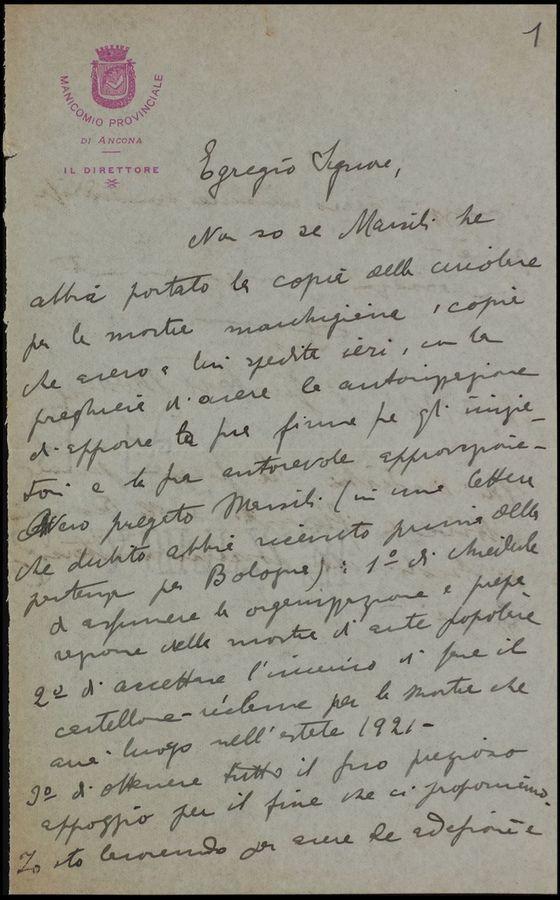 1
MANICOMIO PROVINCIALE
DI ANCONA
IL DIRETTORE
Egregio Signore,
Non so se Marsili le
abbia portato la copia della circolare
per la mostra marchigiana, copia
che avevo a lui spedita ieri, con la
preghiera d'avere la autorizzazione
di apporre la sua firma fra gli inizia-
tori e la sua autorevole approvazione-
Avevo pregato Marsili (in una lettera
che dubito abbia ricevuto prima della
partenza per Bologna): 1º di chiederle
d'assumere la organizzazione e prepa
razione della mostra d'arte popolare
2º di accettare l'incarico di fare il
cartellone-réclame per la mostra che
avrà luogo nell'estate 1921-
3º di ottenere tutto il suo prezioso
appoggio per il fine che ci proponiamo
Io sto lavorando per avere le adesioni e